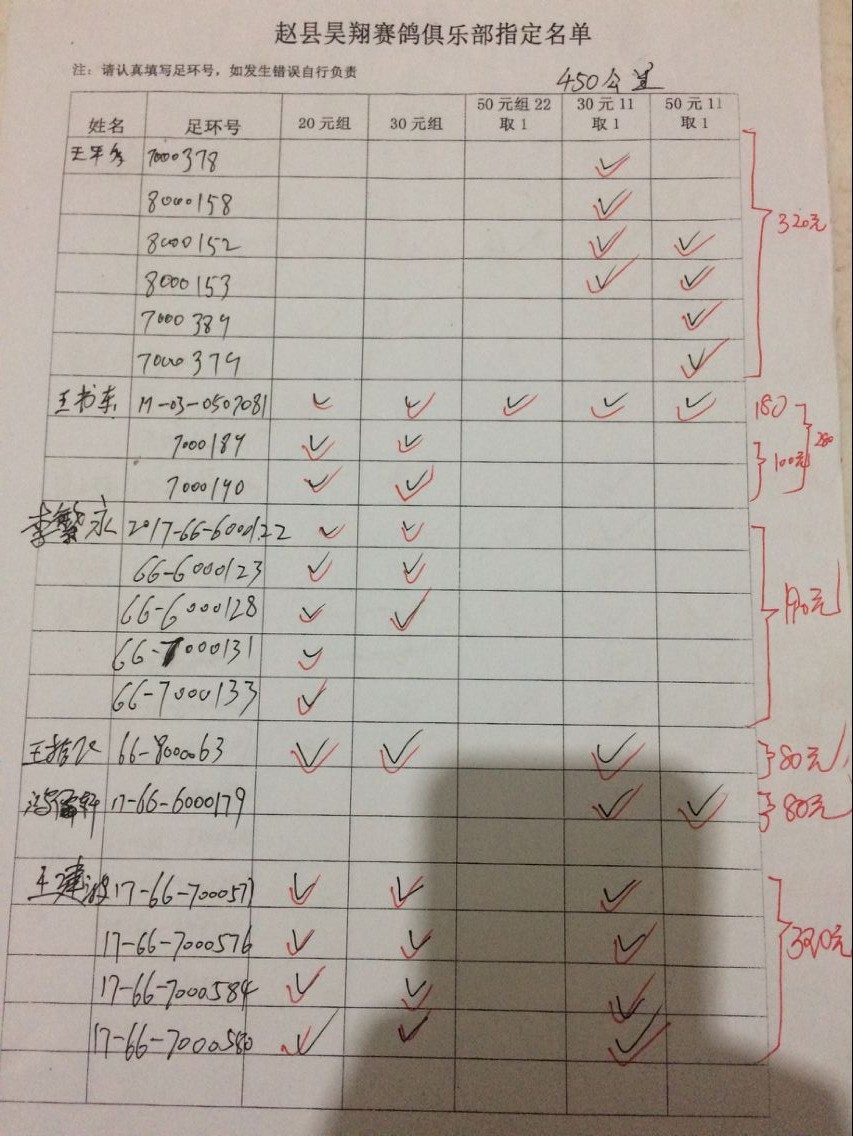 赵县昊翔赛鸽俱乐部指定名单
注：请认真填写足环号，如发生错误自行负责
450公里
姓名 足环号 20元组 30元组 50元组22取1 30元11取1 50元11取1
7000378 ✓
8000158 ✓
8000152 ✓ ✓ 320元
8000153 ✓ ✓
7000389 ✓
7000379 ✓
王书东 17-03-0507081 ✓ ✓ ✓ ✓ ✓ 180
7000189 ✓ ✓ 280
7000190 ✓ ✓ 100元
李繁永 2017-66-6000122 ✓ ✓
66-6000123 ✓ ✓
66-6000128 ✓ ✓ 190元
66-7000131 ✓
66-7000133 ✓
66-8000063 ✓ ✓ ✓ 80元
17-66-6000179 ✓ ✓ 80元
王建波 17-66-7000577 ✓ ✓ ✓
17-66-7000576 ✓ ✓ ✓ 320元
17-66-7000584 ✓ ✓ ✓
17-66-7000580 ✓ ✓ ✓